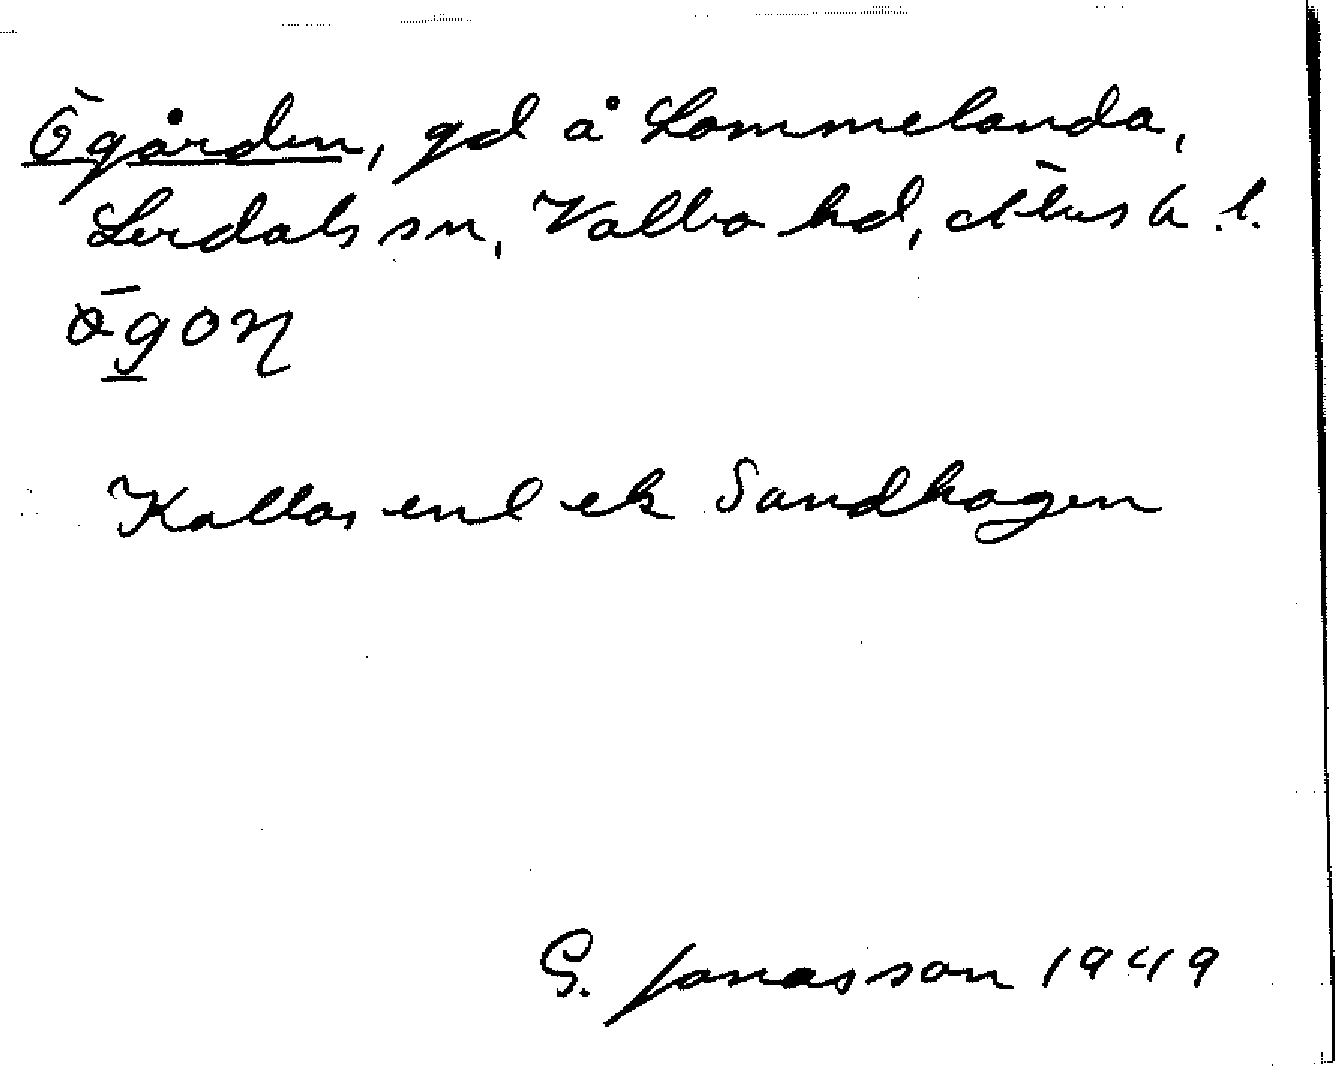 Ögården, gd å Lommelanda,
Lerdals sn, Valbo hd, Älvsb. l.
ø̄goɳ
Kallas enl ek Sandhagen
G. Jonasson 1949